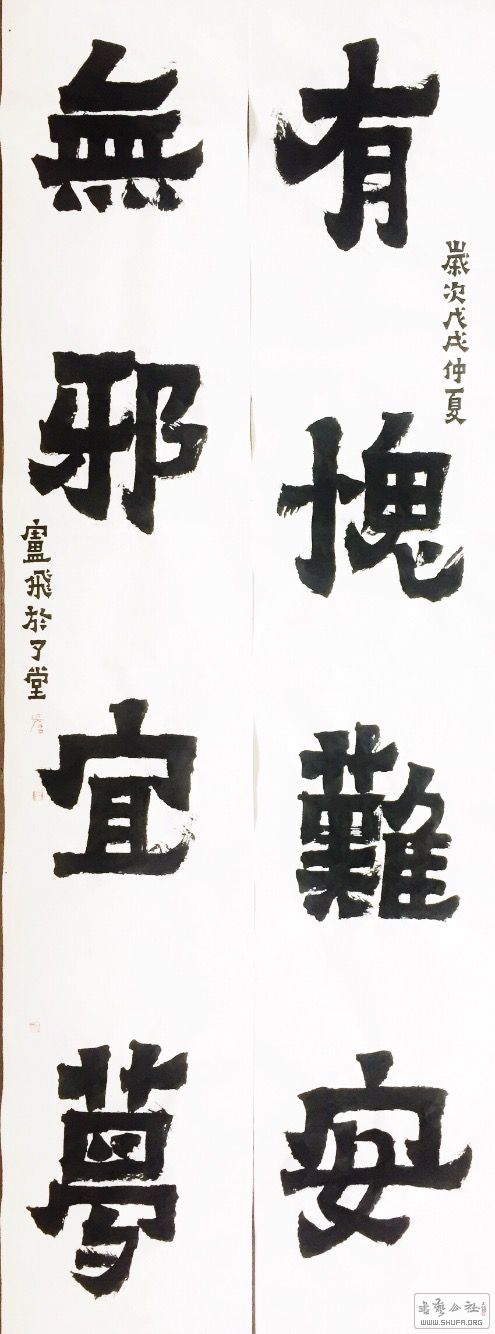 有愧難安
歲次戊戌仲夏
無邪宜夢
盧飛於了堂
書藝公社
WWW.SHUFA.ORG